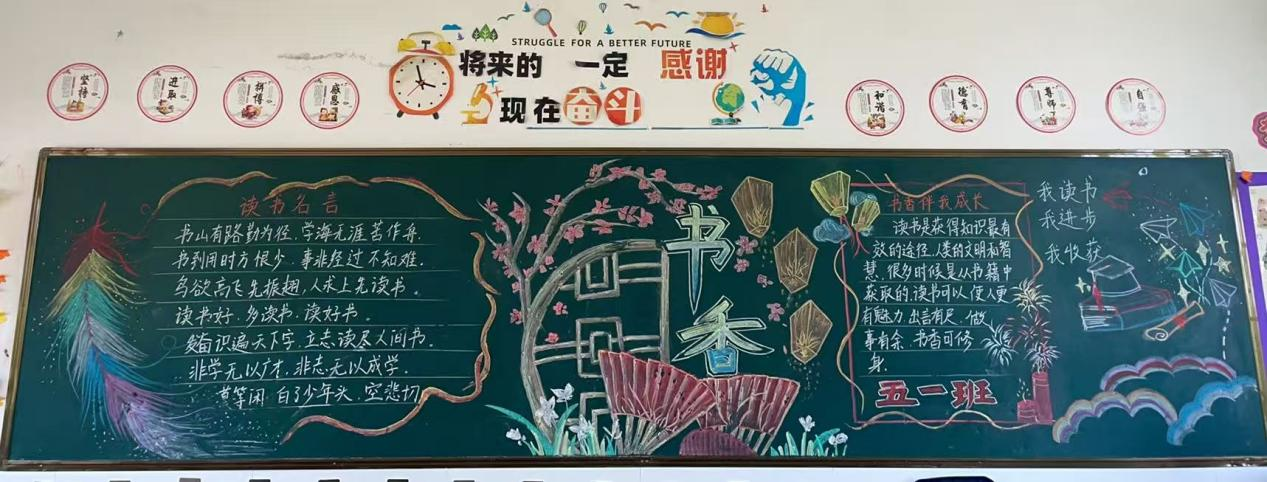 STRUGGLE FOR A BETTER FUTURE
将来的 一定 感谢
现在奋斗
坚持
进取
拼搏
感恩
和谐
德育
尊师
自强
读书名言
书山有路勤为径,学海无涯苦作舟.
书到用时方恨少,事非经过不知难.
鸟欲高飞先振翅,人求上先读书.
读书好,多读书,读好书.
奋识遍天下字,立志读尽人间书.
非学无以广才,非志无以成学.
莫等闲,白了少年头,空悲切
书香
书香伴我成长
读书是获得知识最有
效的途径.人类的文明和智
慧,很多时候是从书籍中
获取的,读书可以使人更
有魅力,出言有尺,做
事有余,书香可修
身.
五一班
我读书
我进步
我收获